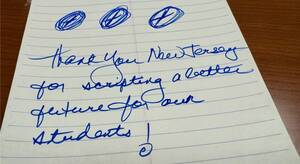 Thank you New Jersey
for scripting a better
future for our
students!